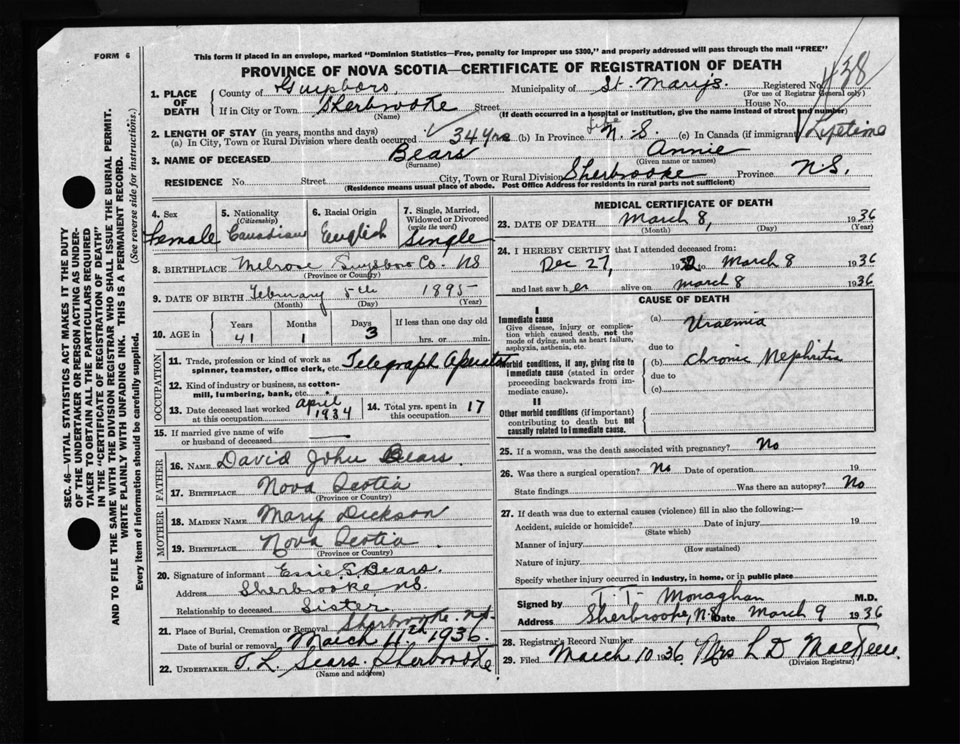 FORM 6
This form if placed in an envelope, marked "Dominion Statistics—Free, penalty for improper use $300," and properly addressed will pass through the mail "FREE"
PROVINCE OF NOVA SCOTIA—CERTIFICATE OF REGISTRATION OF DEATH
SEC. 46—VITAL STATISTICS ACT MAKES IT THE DUTY
OF THE UNDERTAKER OR PERSON ACTING AS UNDER-
TAKER TO OBTAIN ALL THE PARTICULARS REQUIRED
IN THE "CERTIFICATE OF REGISTRATION OF DEATH"
AND TO FILE THE SAME WITH THE DIVISION REGISTRAR WHO SHALL ISSUE THE BURIAL PERMIT.
WRITE PLAINLY WITH UNFADING INK. THIS IS A PERMANENT RECORD.
Every item of information should be carefully supplied. (See reverse side for instructions.)
1. PLACE OF DEATH
County of Guysboro Municipality of St. Mary's Registered No. 438
(For use of Registrar General only)
If in City or Town Sherbrooke Street House No.
(Name) (If death occurred in a hospital or institution, give the name instead of street and number)
2. LENGTH OF STAY (in years, months and days)
(a) In City, Town or Rural Division where death occurred 34 yrs (b) In Province life N. S. (c) In Canada (if immigrant) Lifetime
3. NAME OF DECEASED Bears Annie
(Surname) (Given name or names)
RESIDENCE No. Street City, Town or Rural Division Sherbrooke Province N.S.
(Residence means usual place of abode. Post Office Address for residents in rural parts not sufficient)
4. Sex female
5. Nationality (Citizenship) Canadian
6. Racial Origin English
7. Single, Married, Widowed or Divorced (write the word) Single
8. BIRTHPLACE Melrose Guysboro Co. NS
(Province or Country)
9. DATE OF BIRTH February 5th 1895
(Month) (Day) (Year)
10. AGE in Years 41 Months 1 Days 3 If less than one day old hrs. or min.
OCCUPATION
11. Trade, profession or kind of work as spinner, teamster, office clerk, etc. Telegraph Operator
12. Kind of industry or business, as cotton-mill, lumbering, bank, etc.
13. Date deceased last worked at this occupation April 1934
14. Total yrs. spent in this occupation 17
15. If married give name of wife or husband of deceased
FATHER
16. NAME David John Bears
17. BIRTHPLACE Nova Scotia
(Province or Country)
MOTHER
18. MAIDEN NAME Mary Dickson
19. BIRTHPLACE Nova Scotia
(Province or Country)
20. Signature of informant Essie S. Bears.
Address Sherbrooke, NS.
Relationship to deceased Sister
21. Place of Burial, Cremation or Removal Sherbrooke. NS.
Date of burial or removal March 11th 1936.
22. UNDERTAKER T. L. Sears. Sherbrooke
(Name and address)
MEDICAL CERTIFICATE OF DEATH
23. DATE OF DEATH March 8, 1936
(Month) (Day) (Year)
24. I HEREBY CERTIFY that I attended deceased from:
Dec 27, 19 to March 8 1936
and last saw her alive on March 8 1936
CAUSE OF DEATH
I
Immediate cause
Give disease, injury or complication which caused death, not the mode of dying, such as heart failure, asphyxia, asthenia, etc.
(a) Uraemia
due to
Morbid conditions, if any, giving rise to immediate cause (stated in order proceeding backwards from immediate cause).
(b) Chronic Nephritis
due to
(c)
II
Other morbid conditions (if important) contributing to death but not causally related to immediate cause.
25. If a woman, was the death associated with pregnancy? No
26. Was there a surgical operation? No Date of operation 19
State findings Was there an autopsy? No
27. If death was due to external causes (violence) fill in also the following:—
Accident, suicide or homicide? Date of injury 19
(State which)
Manner of injury
(How sustained)
Nature of injury
Specify whether injury occurred in industry, in home, or in public place
Signed by T. T. Monaghan M.D.
Address Sherbrooke, N.S. Date March 9 1936
28. Registrar's Record Number
29. Filed March 10 1936 Mrs L D
(Division Registrar)